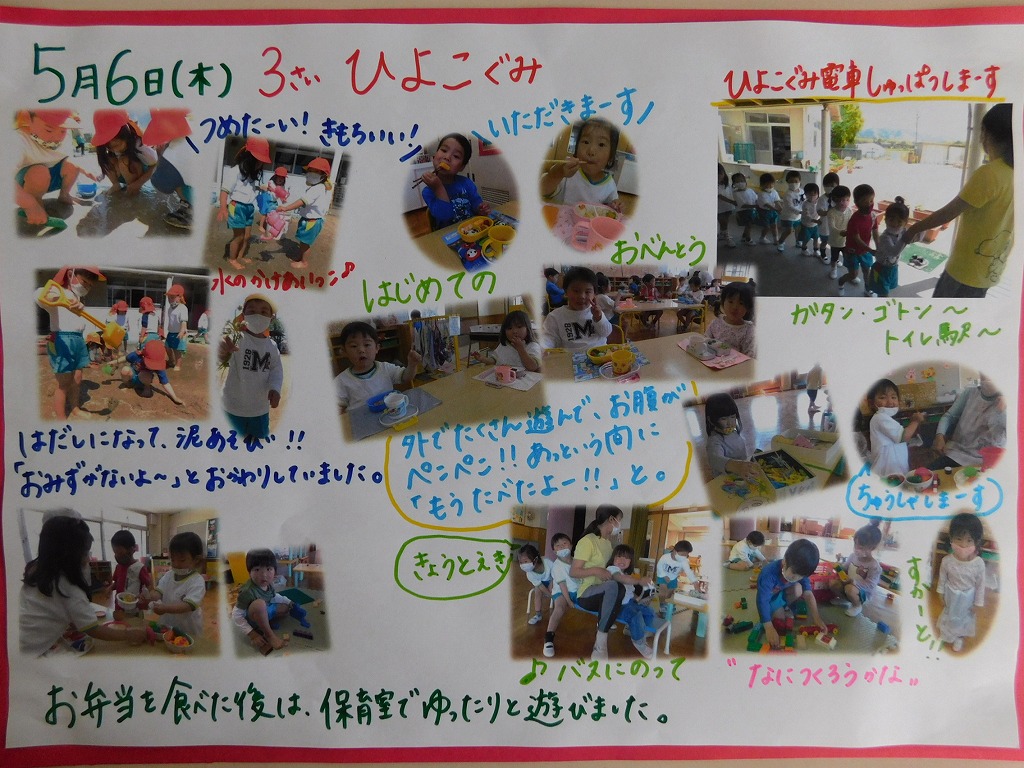 5月6日(木) 3さい ひよこぐみ
ひよこぐみ電車しゅっぱつしまーす
つめたーい! きもちいい!
いただきまーす
水のかけあいっこ♪
はじめての
おべんとう
ガタン・ゴトン～
トイレ駅～
はだしになって、泥あそび!!
「おみずがないよ～」とおかわりしていました。
外でたくさん遊んで、お腹が
ペンペン!! あっという間に
「もうたべたよー!!」と。
ちゅうしゃしまーす
きょうとえき
すかーと!!
♪バスにのって
"なにつくろうかな"
お弁当を食べた後は、保育室でゆったりと遊びました。
1928
M
1928
M